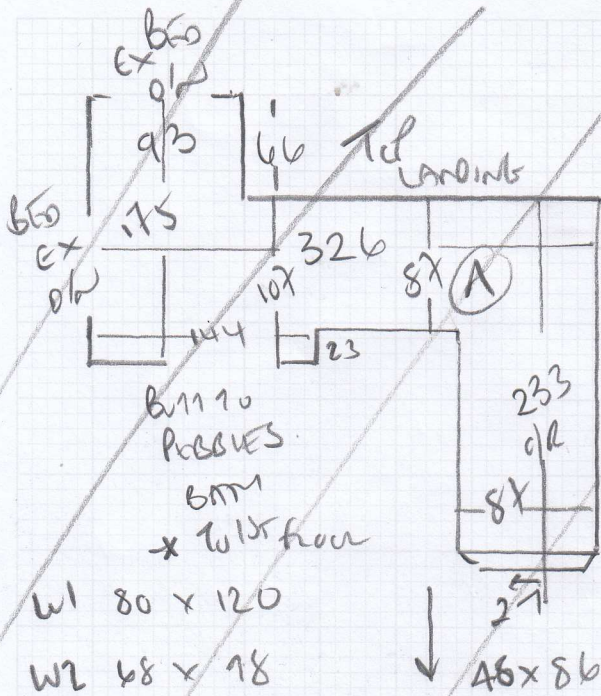 BED
EX
93
66
TOP
LANDING
BED
EX
175
326
107
87
A
144
23
BUTT TO
PEBBLES
BATH
* TO 1ST FLOOR
233
87
2
W1 80 x 120
W2 68 x 78
46 x 86